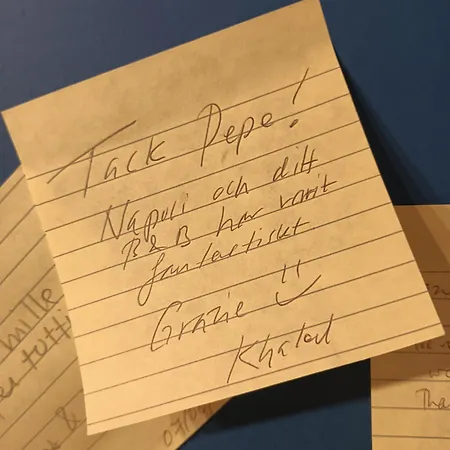 Tack Pepe!
Napoli och ditt
B&B har varit
fantastiskt
Grazie
Khaled
mille
tutti
&
07/07